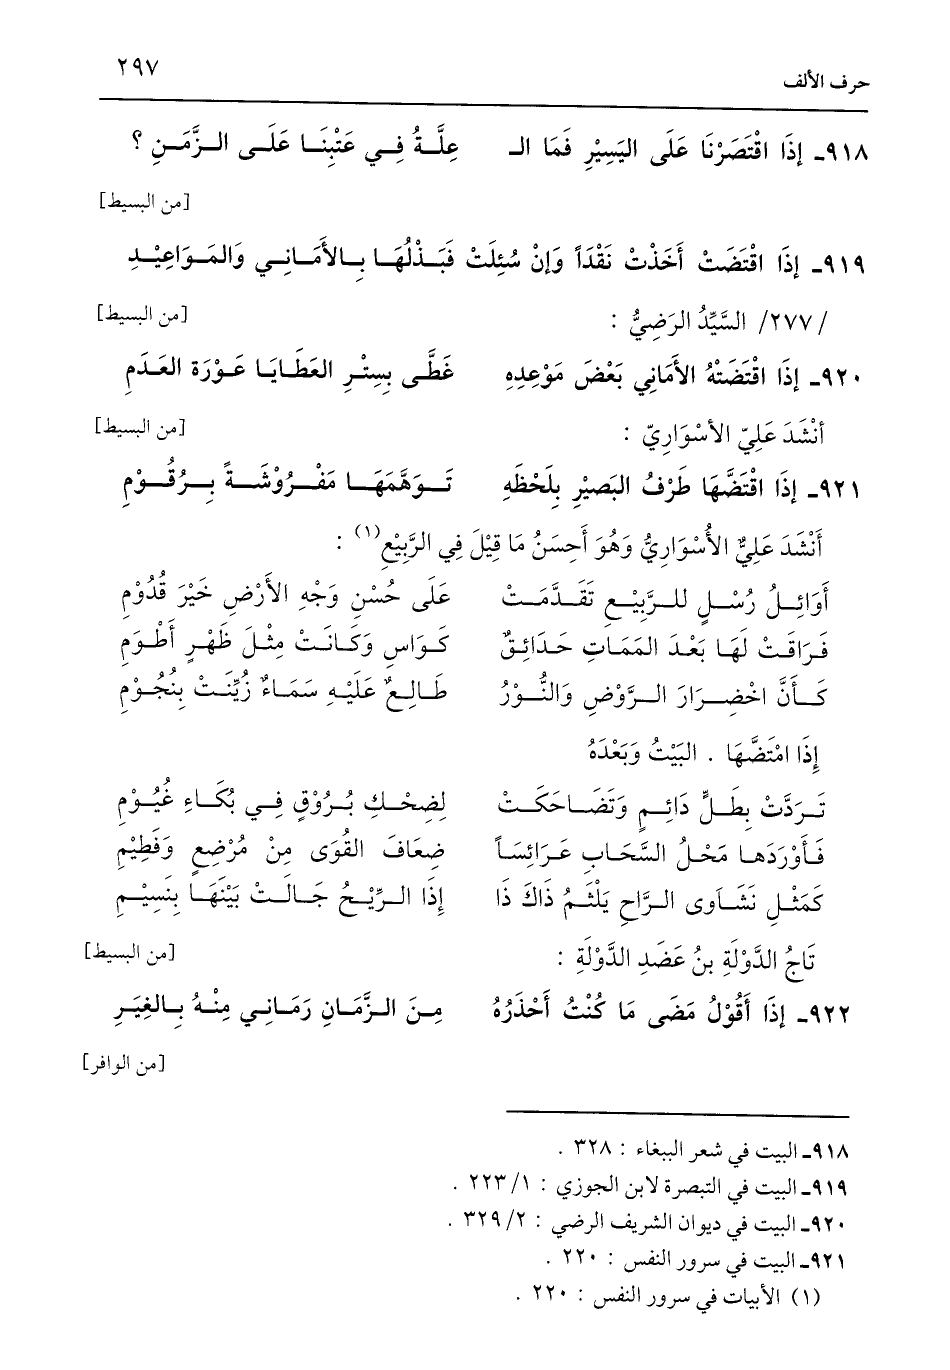 حرف الألف ٢٩٧
٩١٨ـ إذَا اقْتَصَرْنَا عَلَى اليَسِيْرِ فَمَا الـ عِلَّةُ فِي عَتْبِنَا عَلَى الزَّمَنِ ؟
[من البسيط]
٩١٩ـ إذَا اقْتَضَتْ أَخَذْتْ نَقْدَاً وَإنْ سُئِلَتْ فَبَذْلُهَا بِالأَمَانِي وَالمَوَاعِيْدِ
/ ٢٧٧/ السَّيِّدُ الرَضِيُّ : [من البسيط]
٩٢٠ـ إذَا اقْتَضَتْهُ الأمَانِي بَعْضَ مَوْعِدِهِ غَطَّى بِسِتْرِ العَطَايَا عَوْرَةَ العَدَمِ
أنْشَدَ عَلِيّ الأسْوَارِيّ : [من البسيط]
٩٢١ـ إذَا اقْتَضَّهَا طَرْفُ البَصِيْرِ بِلَحْظَهِ تَوَهَّمَهَا مَفْرُوْشَةً بِرُقُوْمِ
أَنْشَدَ عَلِيٌّ الأُسْوَارِيُّ وَهُوَ أَحِسَنُ مَا قِيْلَ فِي الرَّبِيْعِ(١) :
أَوَائِلُ رُسْلٍ للرَّبِيْعِ تَقَدَّمَتْ عَلَى حُسْنِ وَجْهِ الأَرْضِ خَيْرَ قُدُوْمِ
فَرَاقَتْ لَهَا بَعْدَ المَمَاتِ حَدَائِقٌ كَوَاسِ وَكَانَتْ مِثْلَ ظَهْرِ أَطْوَمِ
كَأَنَّ اخْضِرَارَ الرَّوْضِ وَالنُّوْرُ طَالِعٌ عَلَيْهِ سَمَاءٌ زُيِّنَتْ بِنُجُوْمِ
إِذَا امْتَضَّهَا . البَيْتُ وَبَعْدَهُ
تَرَدَّتْ بِطَلٍّ دَائِمٍ وَتَضَاحَكَتْ لِضِحْكِ بُرُوْقٍ فِي بُكَاءِ غُيُوْمِ
فَأَوْرَدَهـا مَحْلُ السَّحَابِ عَرَائِسَاً ضِعَافَ القُوَى مِنْ مُرْضِعٍ وَفَطِيْمِ
كَمَثْلِ نَشَاوى الرَّاحِ يَلْثمُ ذَاكَ ذَا إِذَا الرِّيْحُ جَالَتْ بَيْنَهَا بِنَسِيْمِ
تَاجُ الدَّوْلَةِ بنُ عَضَدِ الدَّوْلَةِ : [من البسيط]
٩٢٢ـ إذَا أَقُوْلُ مَضَى مَا كُنْتُ أَحْذَرُهُ مِنَ الزَّمَانِ رَمَانِي مِنْهُ بِالغِيَرِ
[من الوافر]
٩١٨ـ البيت في شعر الببغاء : ٣٢٨ .
٩١٩ـ البيت في التبصرة لابن الجوزي : ٢٢٣/١ .
٩٢٠ـ البيت في ديوان الشريف الرضي : ٣٢٩/٢ .
٩٢١ـ البيت في سرور النفس : ٢٢٠ .
(١) الأبيات في سرور النفس : ٢٢٠ .